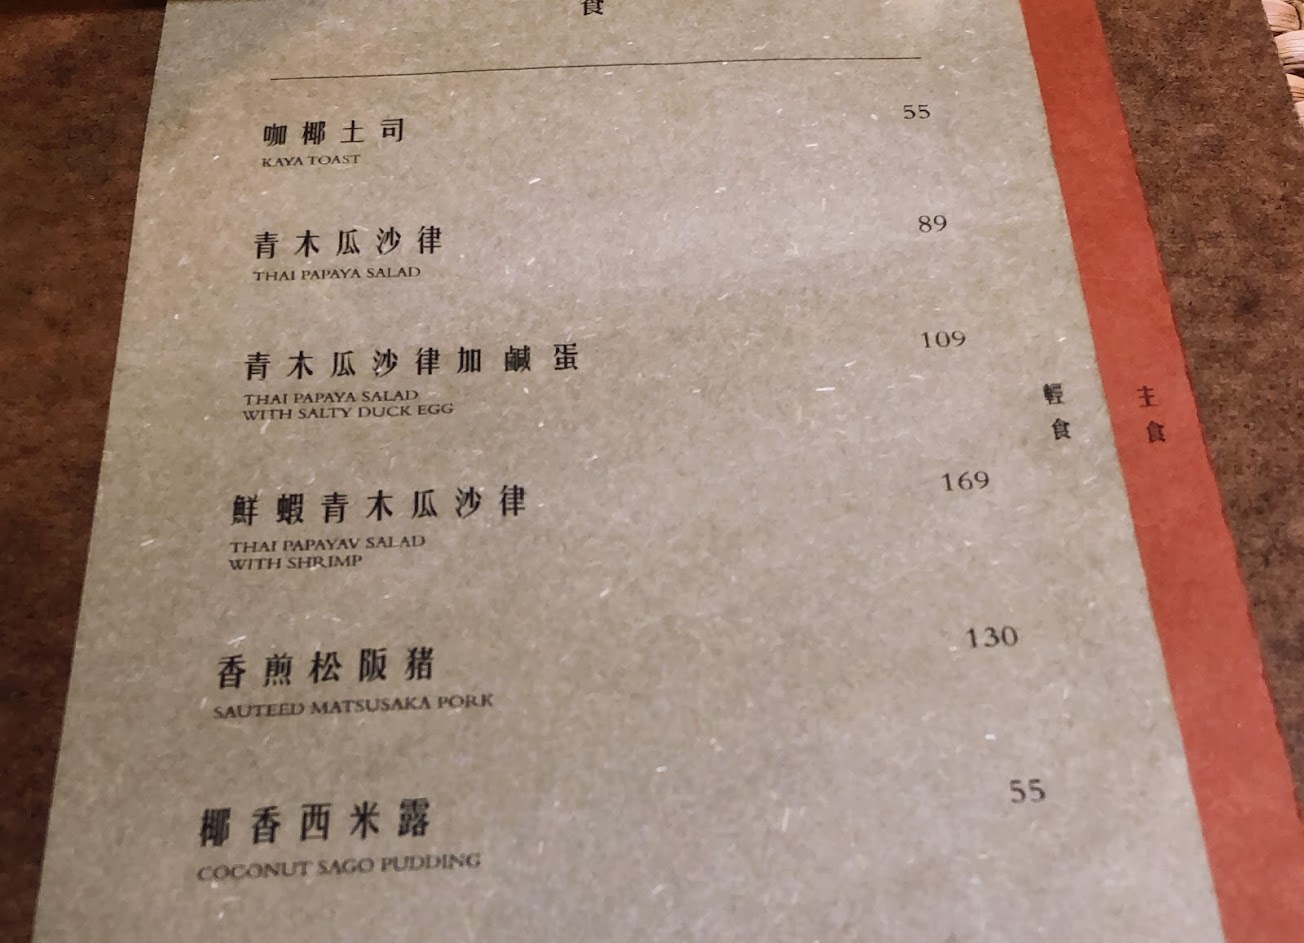 食
咖椰土司 55
KAYA TOAST
青木瓜沙律 89
THAI PAPAYA SALAD
青木瓜沙律加鹹蛋 109
THAI PAPAYA SALAD
WITH SALTY DUCK EGG
鮮蝦青木瓜沙律 169
THAI PAPAYAV SALAD
WITH SHRIMP
香煎松阪豬 130
SAUTEED MATSUSAKA PORK
椰香西米露 55
COCONUT SAGO PUDDING
輕食
主食